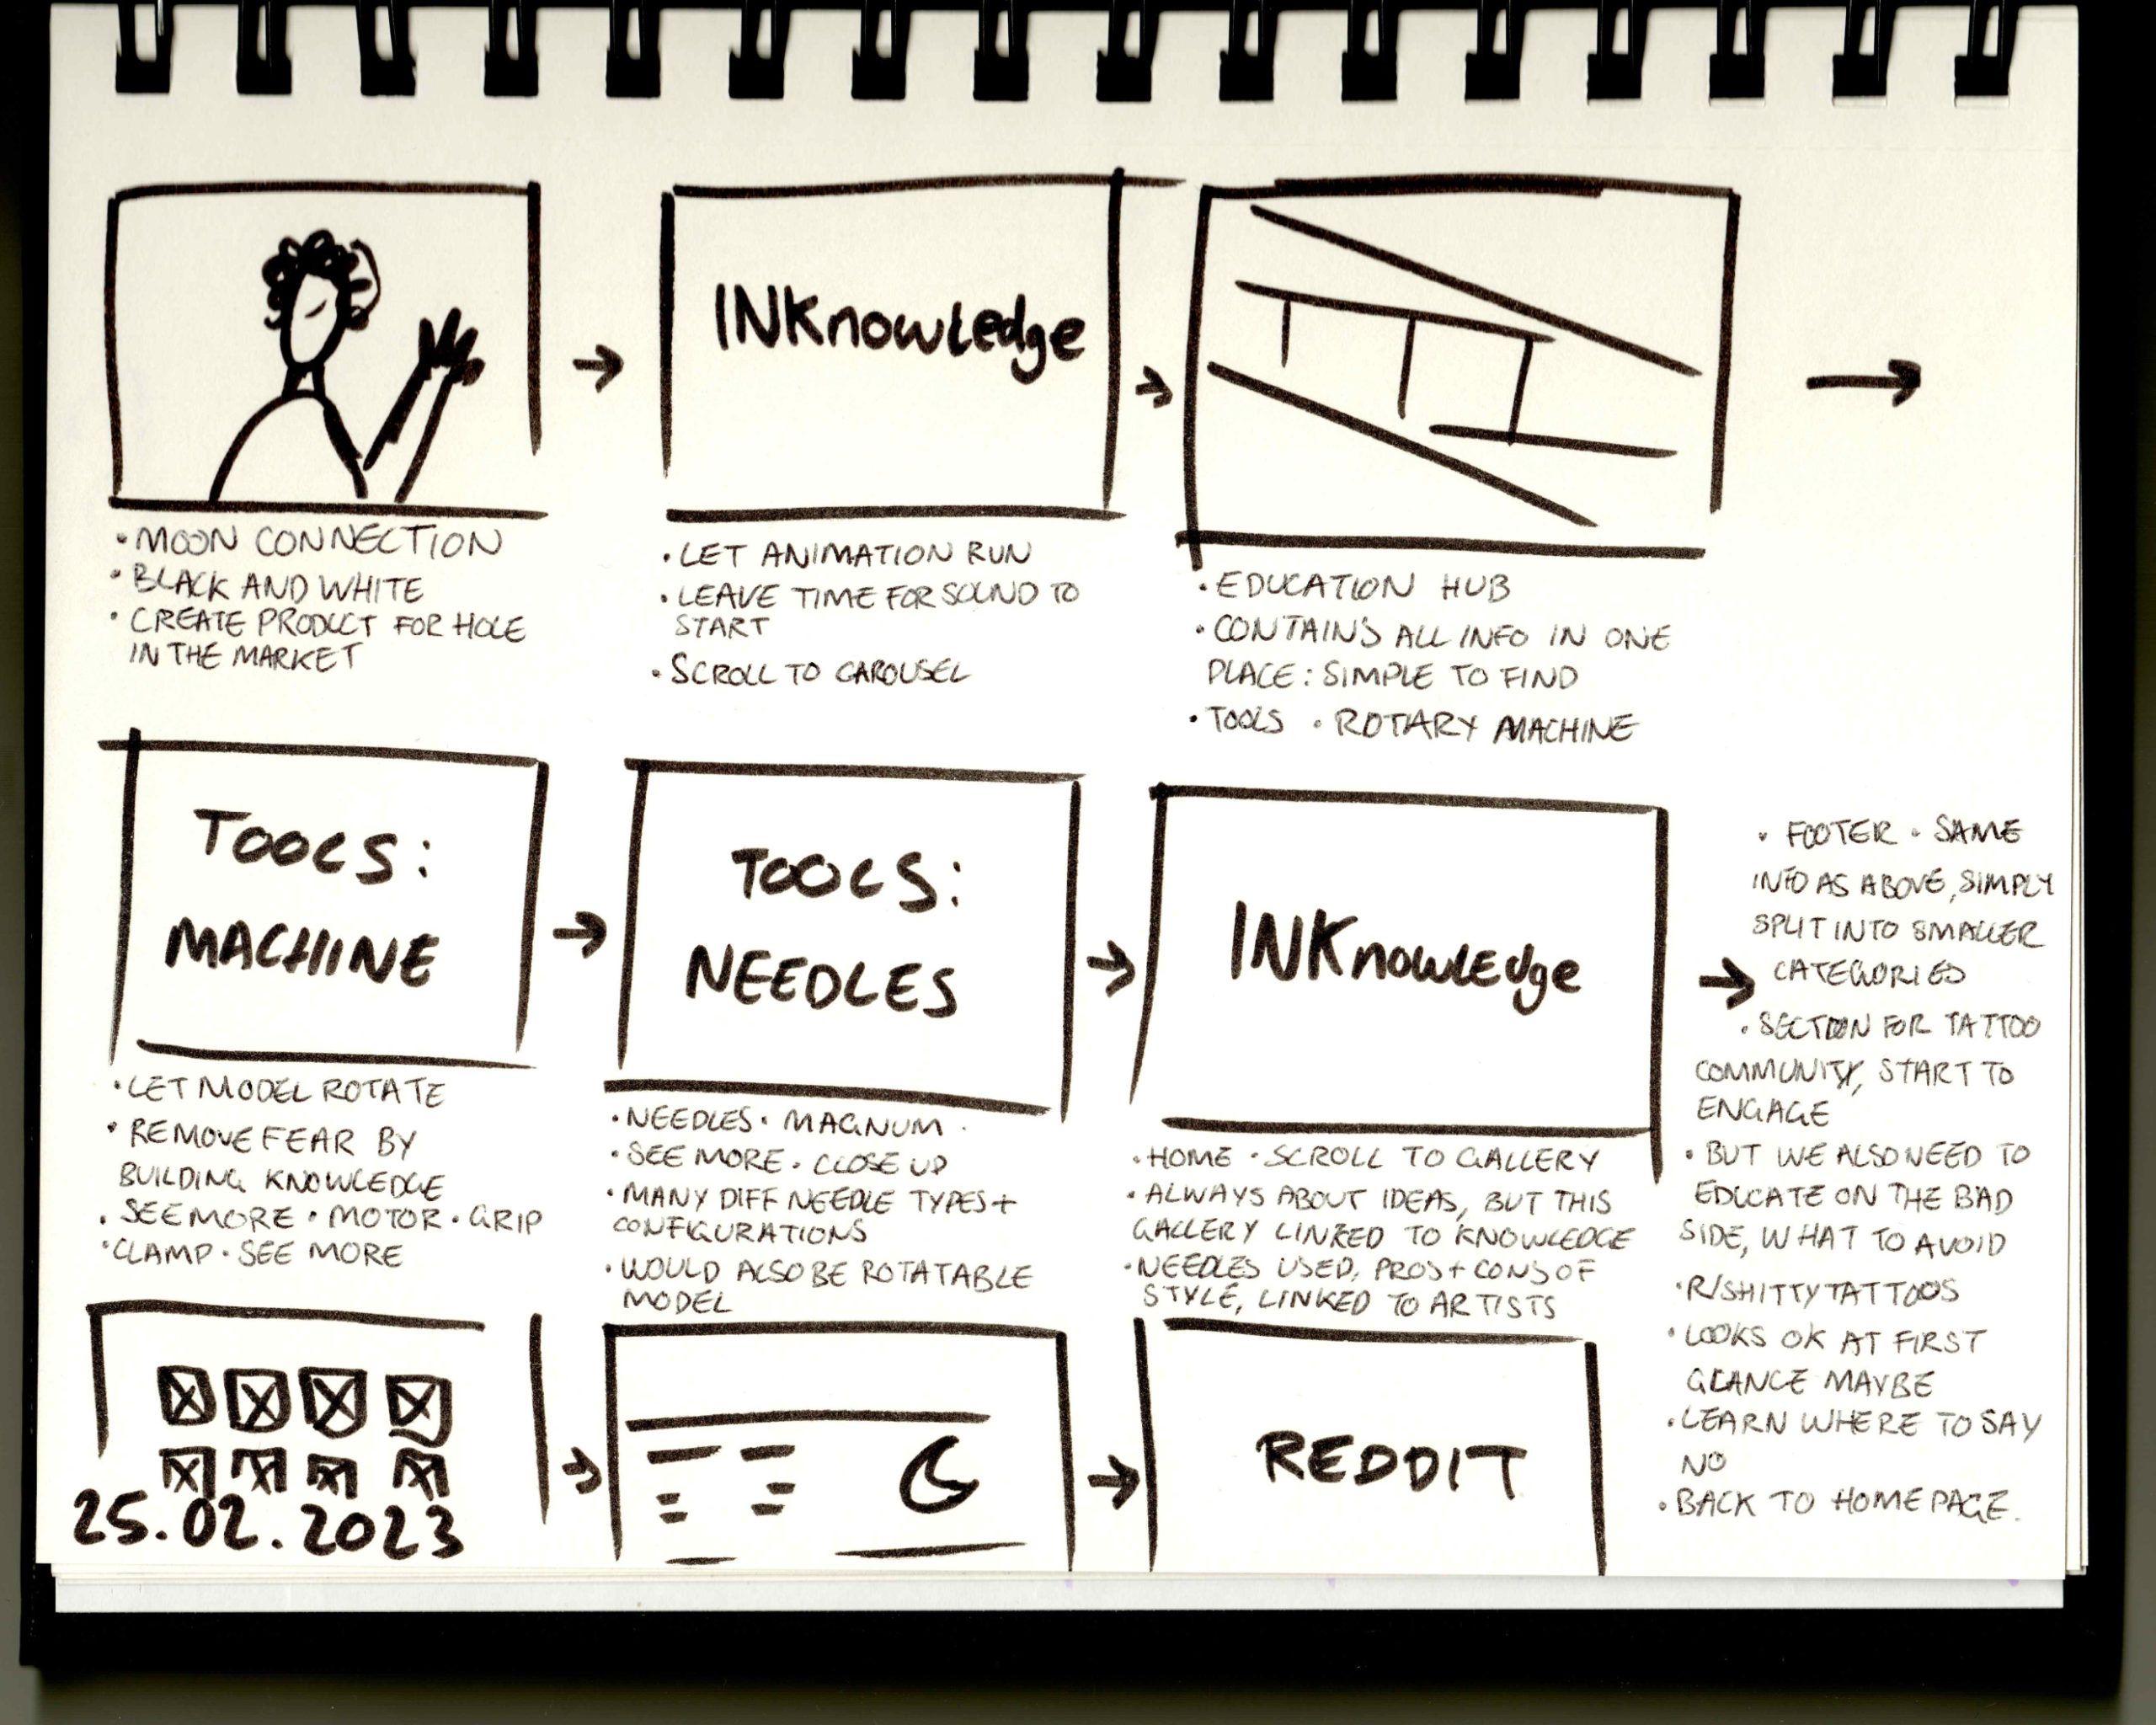 INKnowledge
• MOON CONNECTION
• BLACK AND WHITE
• CREATE PRODUCT FOR HOLE
IN THE MARKET
• LET ANIMATION RUN
• LEAVE TIME FOR SOUND TO
START
• SCROLL TO CAROUSEL
• EDUCATION HUB
• CONTAINS ALL INFO IN ONE
PLACE: SIMPLE TO FIND
• TOOLS • ROTARY MACHINE
TOOLS:
MACHINE
TOOLS:
NEEDLES
INKnowledge
• LET MODEL ROTATE
• REMOVE FEAR BY
BUILDING KNOWLEDGE
• SEE MORE • MOTOR • GRIP
• CLAMP • SEE MORE
• NEEDLES • MAGNUM
• SEE MORE • CLOSE UP
• MANY DIFF NEEDLE TYPES +
CONFIGURATIONS
• WOULD ALSO BE ROTATABLE
MODEL
• HOME • SCROLL TO GALLERY
• ALWAYS ABOUT IDEAS, BUT THIS
GALLERY LINKED TO KNOWLEDGE
• NEEDLES USED, PROS + CONS OF
STYLE, LINKED TO ARTISTS
• FOOTER • SAME
INFO AS ABOVE, SIMPLY
SPLIT INTO SMALLER
CATEGORIES
• SECTION FOR TATTOO
COMMUNITY, START TO
ENGAGE
• BUT WE ALSO NEED TO
EDUCATE ON THE BAD
SIDE, WHAT TO AVOID
• R/SHITTYTATTOOS
• LOOKS OK AT FIRST
GLANCE MAYBE
• LEARN WHERE TO SAY
NO
• BACK TO HOMEPAGE.
25.02.2023
REDDIT